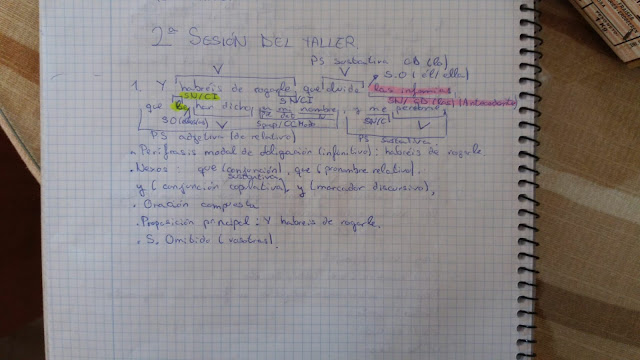 2ª SESIÓN DEL TALLER.
PS sustantiva CD (lo)
V
V
S.O (él/ella)
1. Y habréis de rogarle que olvide las infamias
SN/CI
SN/CI
SN/CD (las) (Antecedente)
que le han dicho en mi nombre, y me perdone
SO
V
Sprep/CCModo
SN/CI
V
PS adjetiva (de relativo)
PS sustantiva
Perífrasis modal de obligación (infinitivo): habréis de rogarle.
. Nexos: que (conjunción), que (pronombre relativo),
sustantiva
y (conjunción copulativa), y (marcador discursivo),
. Oración compuesta
. Proposición principal: Y habréis de rogarle.
. S. Omitido (vosotros).